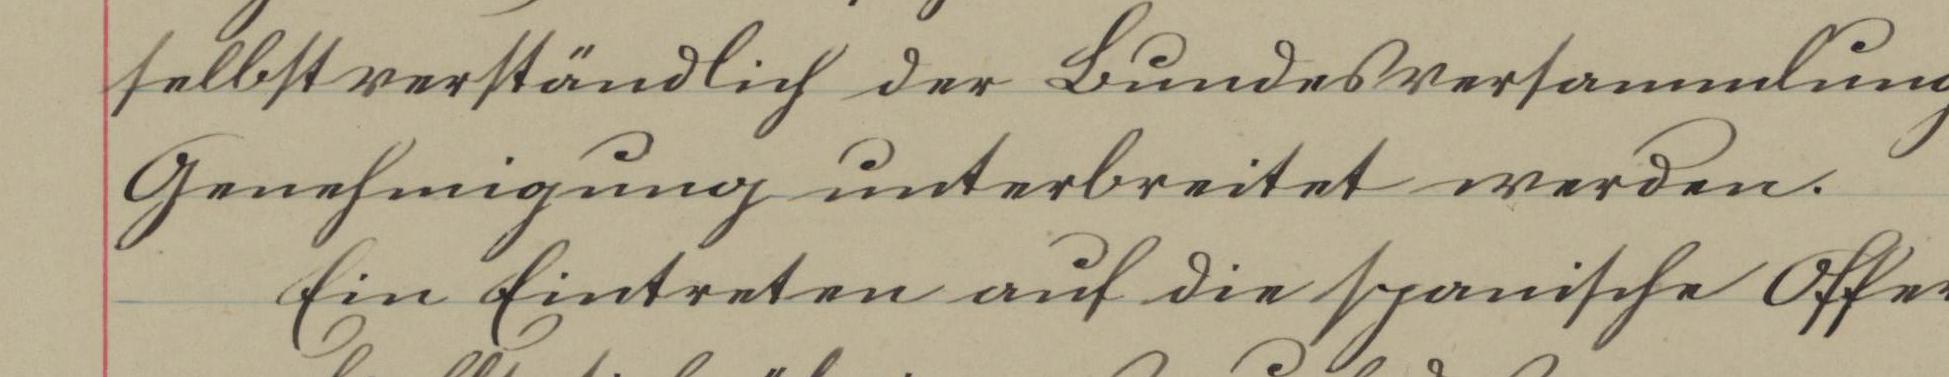 selbstverständlich der Bundesversammlung
Genehmigung unterbreitet werden.
Ein Eintreten auf die spanische Offer